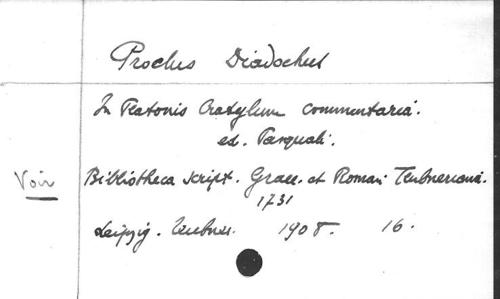 Proclus Diadochus
In Platonis Cratylum commentaria.
ed. Pasquali.
Voir
Bibliotheca script. Graec. et Roman. Teubneriana.
1731
Leipzig. Teubner. 1908. 16.